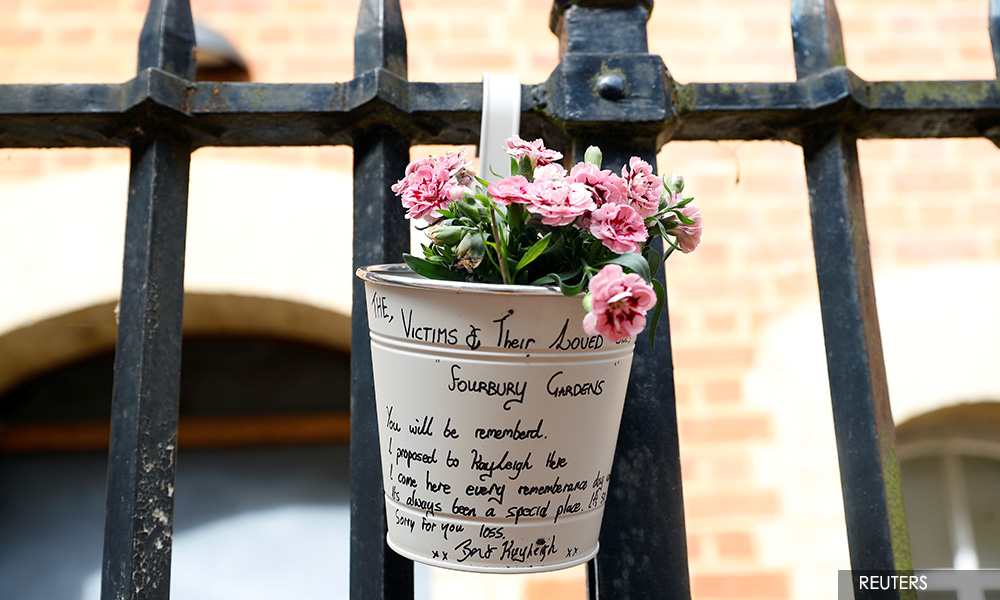 THE, VICTIMS & Their LOVED
" FOURBURY GARDENS "
You will be rememberd.
I proposed to Kayleigh Here
I come here every rememberance day
it's always been a special place.
Sorry for you loss,
xx Ben & Kayleigh xx
REUTERS